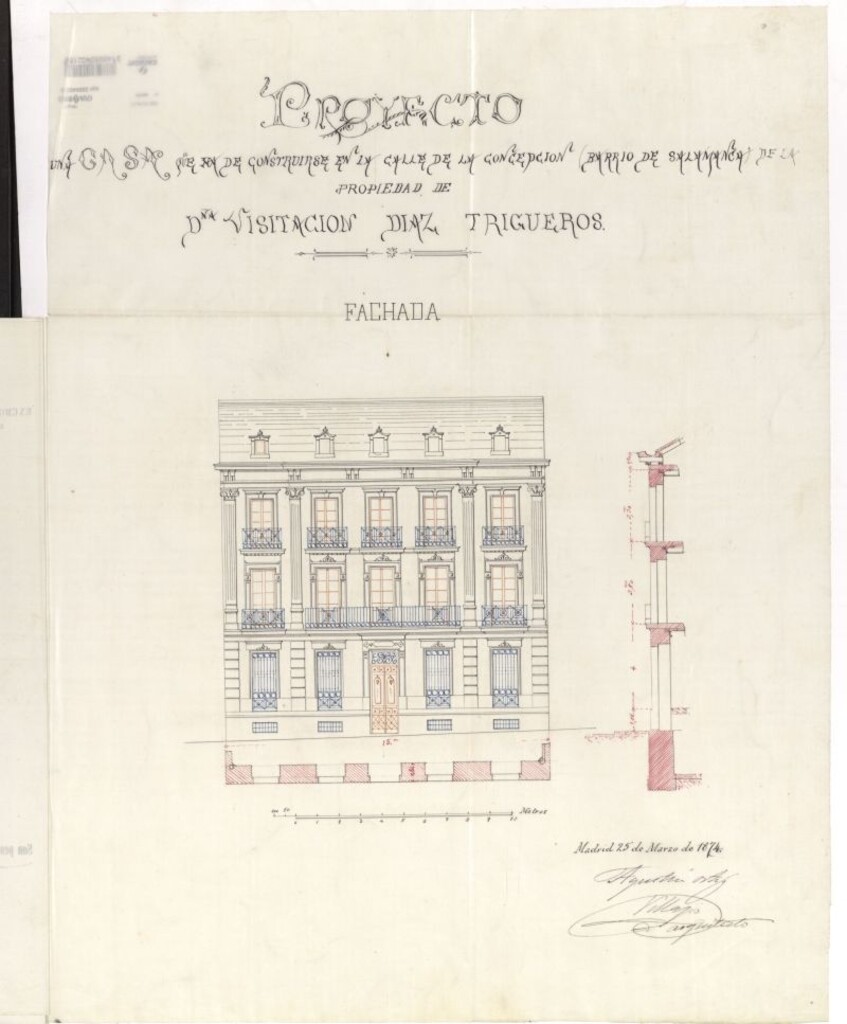 PROYECTO
UNA CASA QUE HA DE CONSTRUIRSE EN LA CALLE DE LA CONCEPCION (BARRIO DE SALAMANCA) DE LA
PROPIEDAD DE
Dña VISITACION DIAZ TRIGUEROS.
FACHADA
Metros
Madrid 25 de Marzo de 1874.
Agustin Ortiz
Villajos
arquitecto